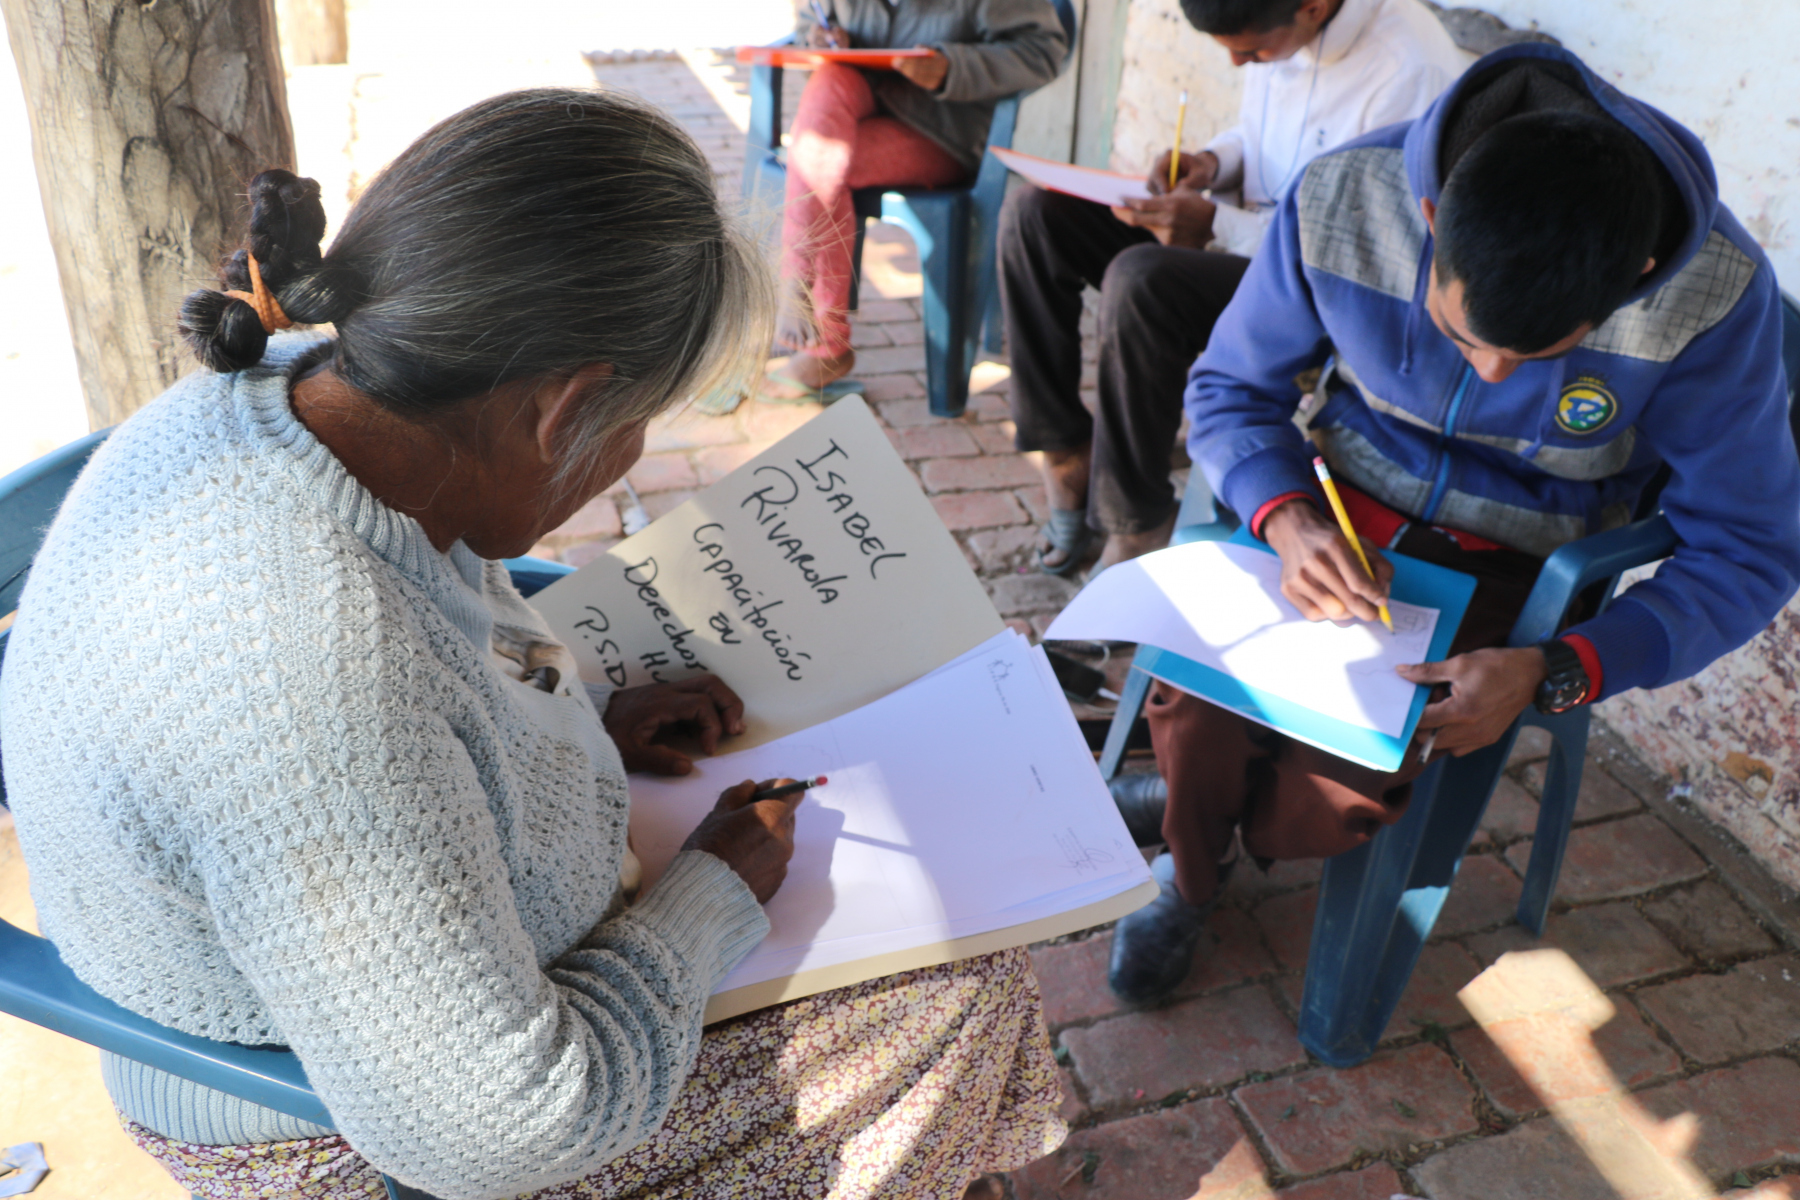 ISABEL
RIVAROLA
CAPACitación
EN
Derechos
Hu
P.S.D